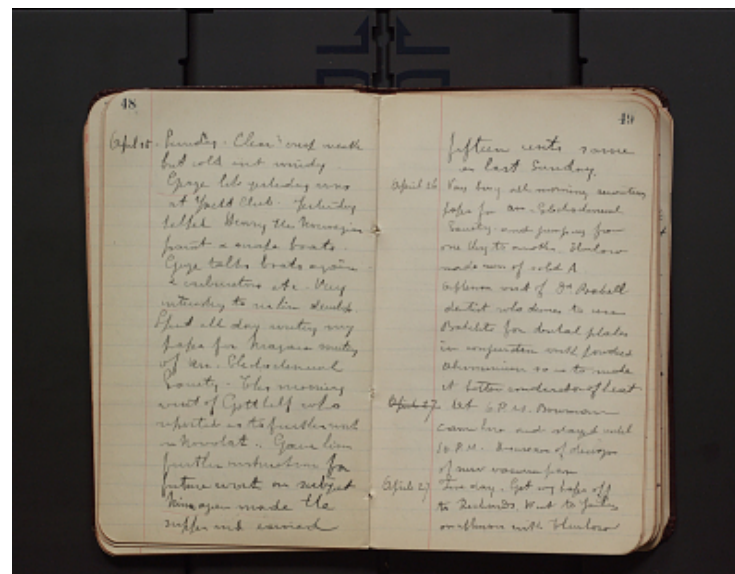 48
April 25 - Sunday - Clear crisp weath
but cold and windy
George left yesterday
at Yacht Club. Yesterday
helped Henry the Norwegian
paint a boats.
George talks boats again
& carburetors etc. Very
Spent all day writing my
paper for Niagara meeting
of Am. Electrochemical
Society - This morning
visit of Gotthelf who
reported as to further work
on Novolak. Gave him
further instructions for
future work on subject
made the
supper and
49
fifteen cents same
as last Sunday.
April 26 Very busy all morning
paper for Am. Electrochemical
Society and jumping from
one thing to another. Thurlow
made run of solid A
Afternoon visit of Dr
dentist who desires to use
Bakelite for dental plates
in conjunction with powdered
Aluminium so as to make
it better conductor of heat
April 27 At 6 P.M. Bowman
came here and stayed until
10 P.M. Discussion of designs
of new vacuum pan
April 27 Fine day. Got my paper off
to Richards. Went to
on afternoon with Thurlow